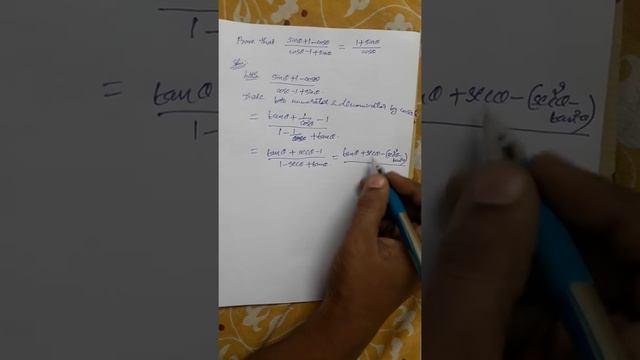 Prove that (sinθ+1-cosθ)/(cosθ-1+sinθ) = (1+sinθ)/cosθ
Sln:
LHS (sinθ+1-cosθ)/(cosθ-1+sinθ)
numerator & denominator by cosθ
= (tanθ + 1/cosθ - 1)/(1 - 1/cosθ + tanθ)
= (tanθ + secθ - 1)/(1 - secθ + tanθ) = tanθ + secθ - (sec²θ - tan²θ)